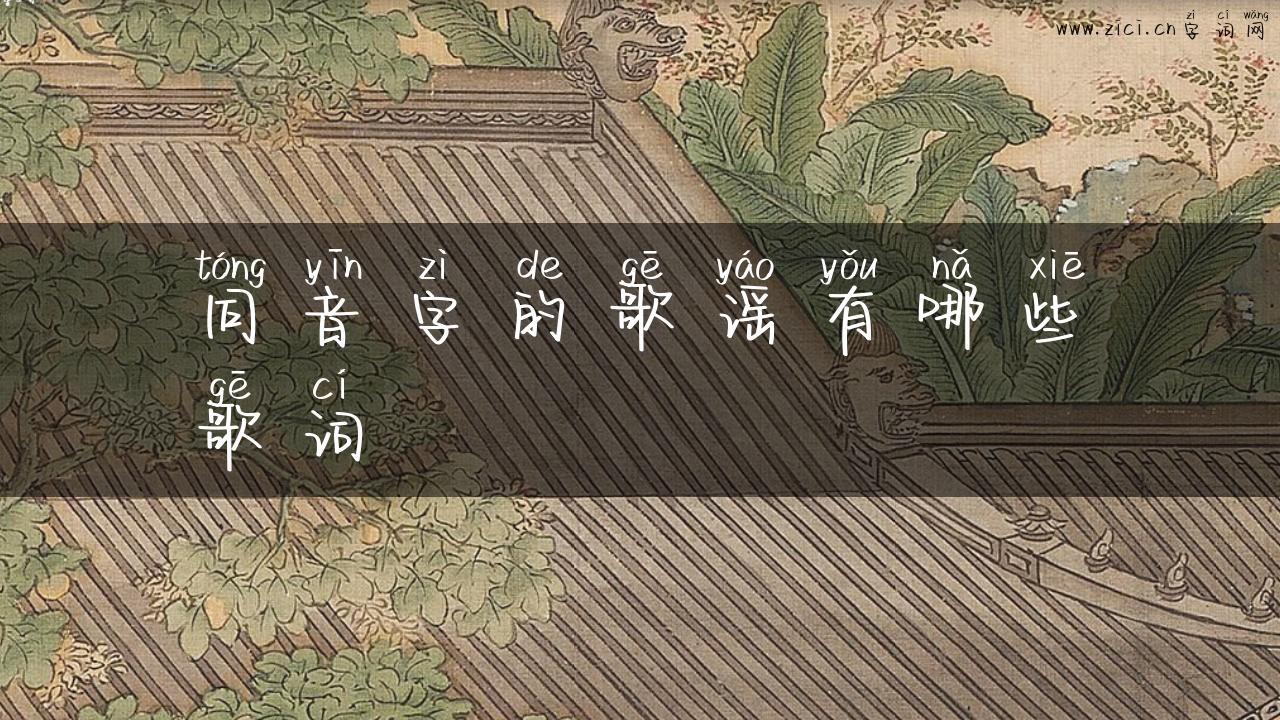 zì cí wǎng
www.zici.cn 字 词 网
tóng yīn zì de gē yáo yǒu nǎ xiē
同 音 字 的 歌 谣 有 哪 些
gē cí
歌 词